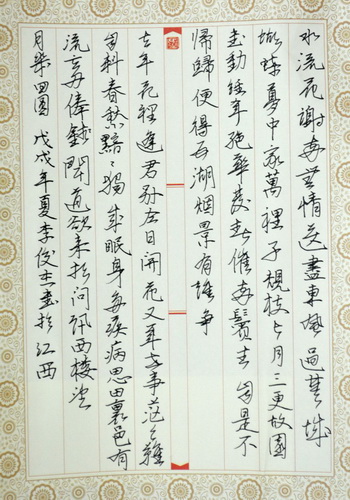 水流花謝兩無情送盡東風過楚城
蝴蝶夢中家萬裡子規枝上月三更故園
書動經年絕華發春催兩鬢生自是不
歸歸便得五湖烟景有誰爭
去年花裡逢君別今日開花又一年世事茫々難
自料春愁黯々獨成眠身多疾病思田裏邑有
流亡愧俸錢聞道欲來相問訊西樓望
月幾回圓 戊戌年夏李俊杰書於江西